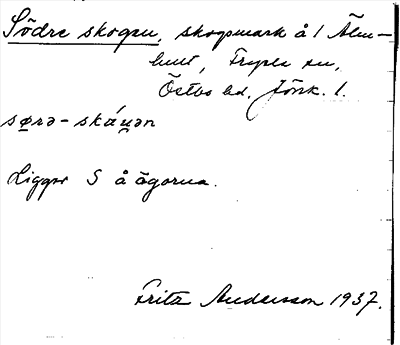 Södre skogen, skogsmark å 1 Älm-
hult, Tryde sn,
Östbo hd. Jönk. l.
sørə-skáu̯ən
Ligger S å ägorna.
Fritz Andersson 1937.